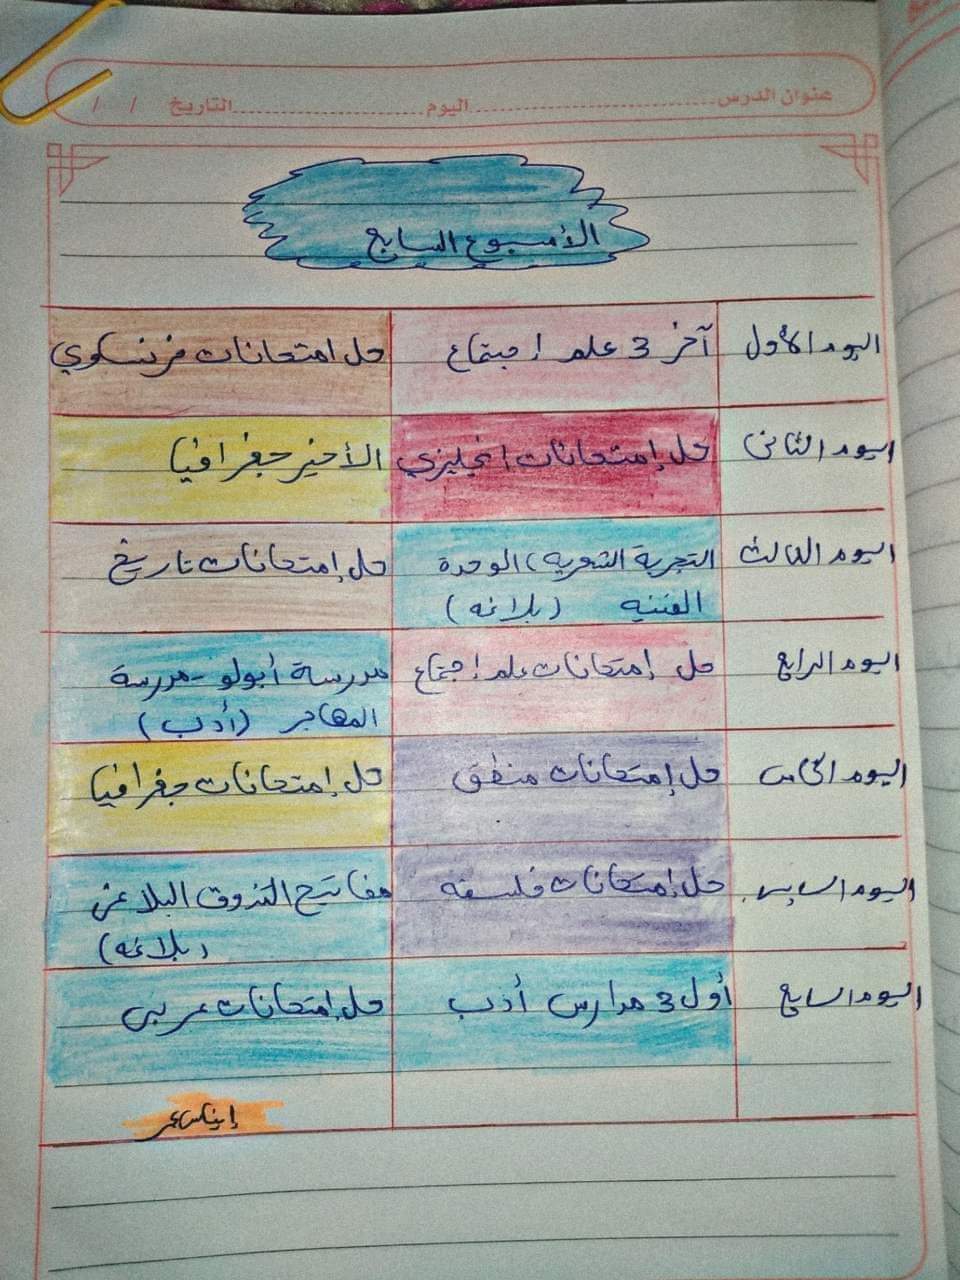 عنوان الدرس اليوم التاريخ / /
الأسبوع السابع
اليوم الأول آخر 3 علم إجتماع حل إمتحانات فرنساوي
اليوم الثاني حل إمتحانات انجليزي الأخير جغرافيا
اليوم الثالث التجربة الشعرية، الوحدة حل إمتحانات تاريخ
الفنية (بلاغه)
اليوم الرابع حل إمتحانات علم إجتماع مدرسة أبولو - مدرسة
المهاجر (أدب)
اليوم الخامس حل إمتحانات منطق حل إمتحانات جغرافيا
اليوم السادس حل إمتحانات فلسفه مفاتيح التذوق البلاغي
(بلاغه)
اليوم السابع أول 3 مدارس أدب حل إمتحانات عربي